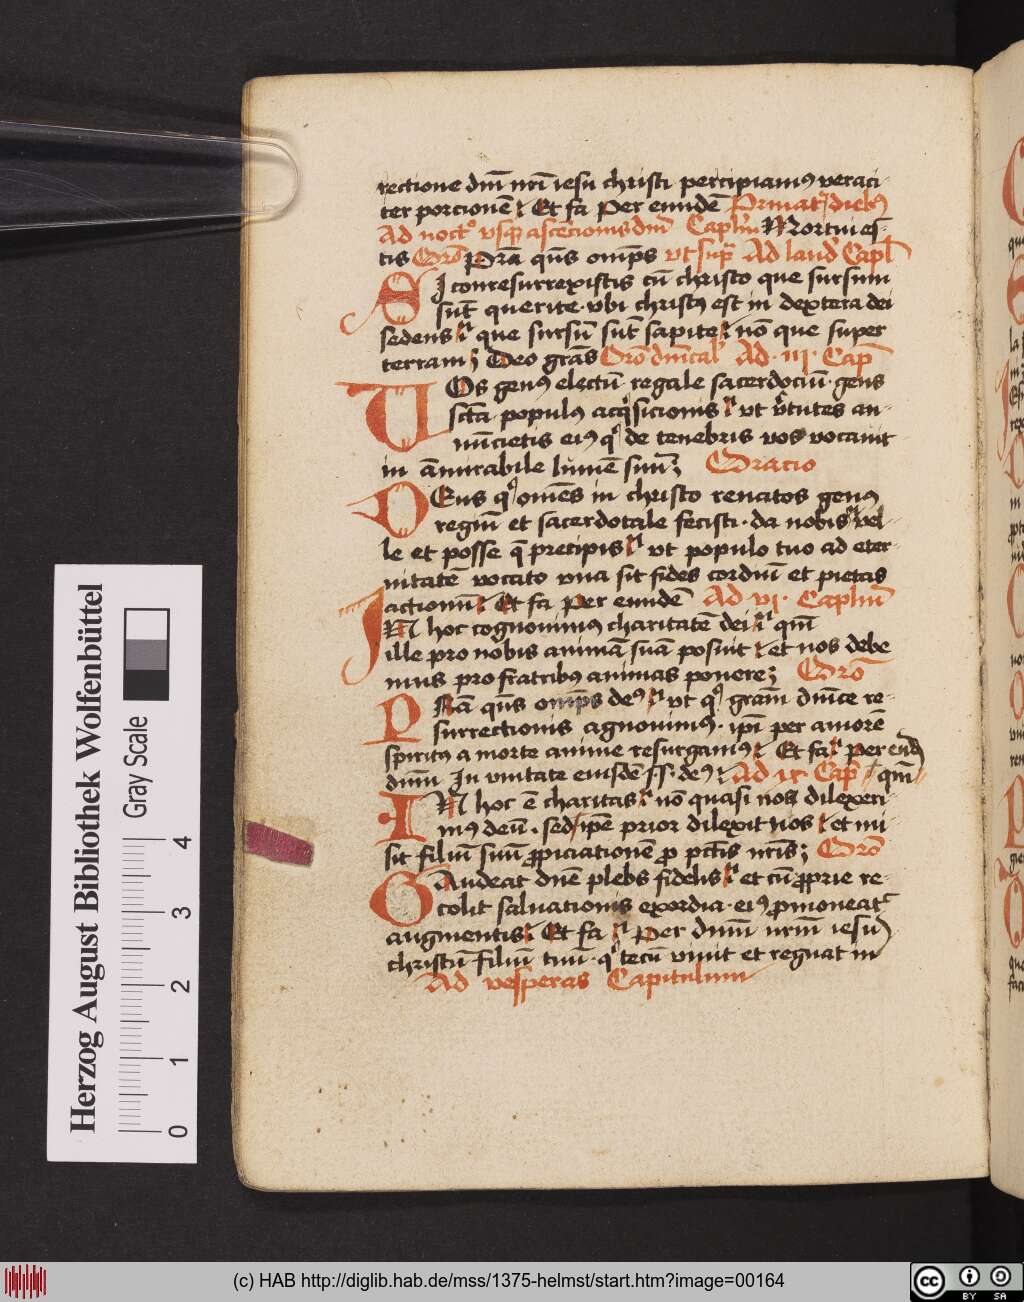 rectione dni nri iesu christi percipiamus veraci-
ter porcione Et fa Per eunde Priuatis diebus
Ad noct vsque ascēcionis dni Caplm Mortui es-
tis Oro Pra qs omps vt sup Ad laud Capl
SI conresurrexistis cū christo que sursum
sūt querite vbi christus est in dextera dei
sedens que sursū sūt sapite nō que super
terram Deo gras Oro dnical Ad iii Cap
VOs genus electū regale sacerdociū gens
scta populus acqsicionis vt vtutes an-
nūcietis eius q de tenebris vos vocauit
in amirabile lumē suū Oracio
DEus q omēs in christo renatos genus
regiū et sacerdotale fecisti da nobis vel-
le et posse q precipis vt populo tuo ad eter-
nitatē vocato vna sit fides cordiū et pietas
actionū Et fa Per eundē Ad vi Caplm
IN hoc cognouimus charitatē dei qm
ille pro nobis animā suā posuit et nos debe
mus pro fratribus animas ponere Oro
PRa qs omps deus vt q gram dnice re-
surrectionis agnouimus ipi per amorē
spiritus a morte anime resurgamus Et fa Per eund
dnm In vnitate eiusdē ss deus Ad ix Cap qm
IN hoc ē charitas nō quasi nos dilexeri-
mus deū sed ipe prior dilexit nos et mi-
sit filiū suū ppiciationē p pctis nris Oro
GAudeat dne plebs fidelis et cū pprie re-
colit saluationis exordia eius pmoueat
augmentis Et fa Per dnm nrm iesū
christū filiū tuū q tecū viuit et regnat in
Ad vesperas Capitulum
Herzog August Bibliothek Wolfenbüttel
Gray Scale
0 1 2 3 4
(c) HAB http://diglib.hab.de/mss/1375-helmst/start.htm?image=00164
cc BY SA